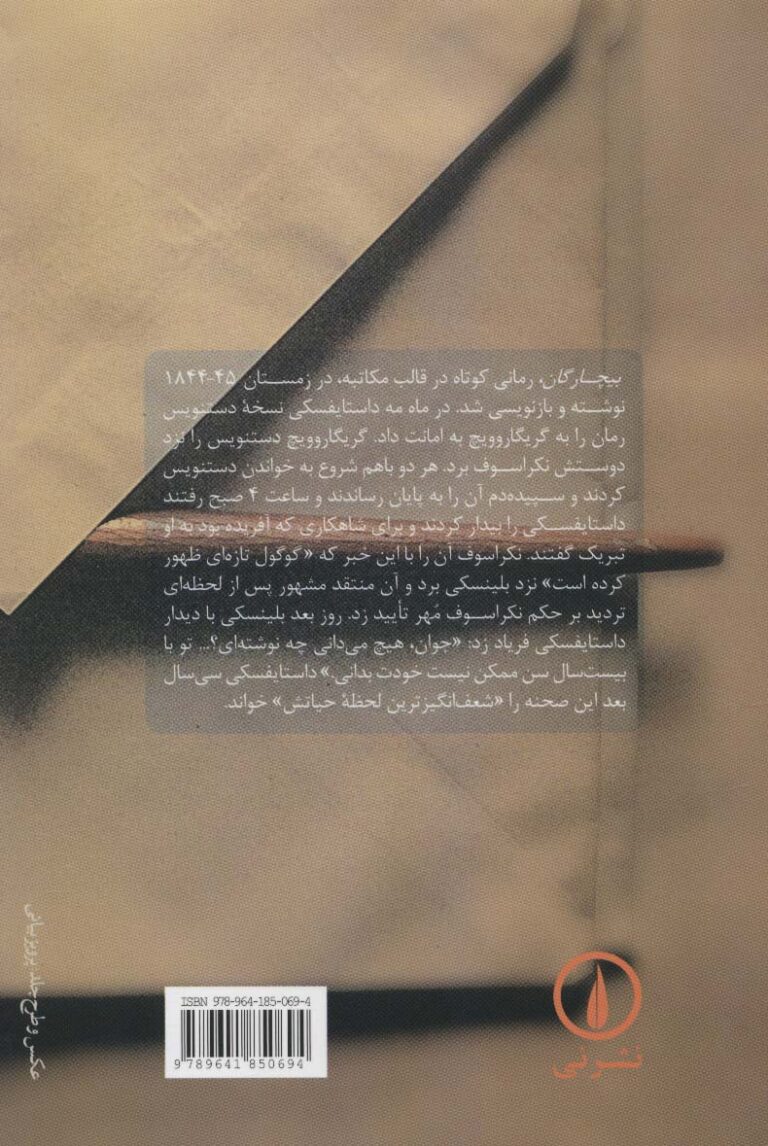 بیچـارگان، رمانی کوتاه در قالب مکاتبه، در زمستان ۴۵-۱۸۴۴
نوشته و بازنویسی شد. در ماه مه داستایفسکی نسخهٔ دستنویس
رمان را به گریگاروویچ به امانت داد. گریگاروویچ دستنویس را نزد
دوستش نکراسوف برد. هر دو باهم شروع به خواندن دستنویس
کردند و سپیده‌دم آن را به پایان رساندند و ساعت ۴ صبح رفتند
داستایفسکی را بیدار کردند و برای شاهکاری که آفریده بود به او
تبریک گفتند. نکراسوف آن را با این خبر که «گوگول تازه‌ای ظهور
کرده است» نزد بلینسکی برد و آن منتقد مشهور پس از لحظه‌ای
تردید بر حکم نکراسوف مُهر تأیید زد. روز بعد بلینسکی با دیدار
داستایفسکی فریاد زد: «جوان، هیچ می‌دانی چه نوشته‌ای؟... تو با
بیست‌سال سن ممکن نیست خودت بدانی.» داستایفسکی سی‌سال
بعد این صحنه را «شعف‌انگیزترین لحظهٔ حیاتش» خواند.
عکس و طرح جلد: پرویز بیانی
ISBN 978-964-185-069-4
9 789641 850694
نشر نی